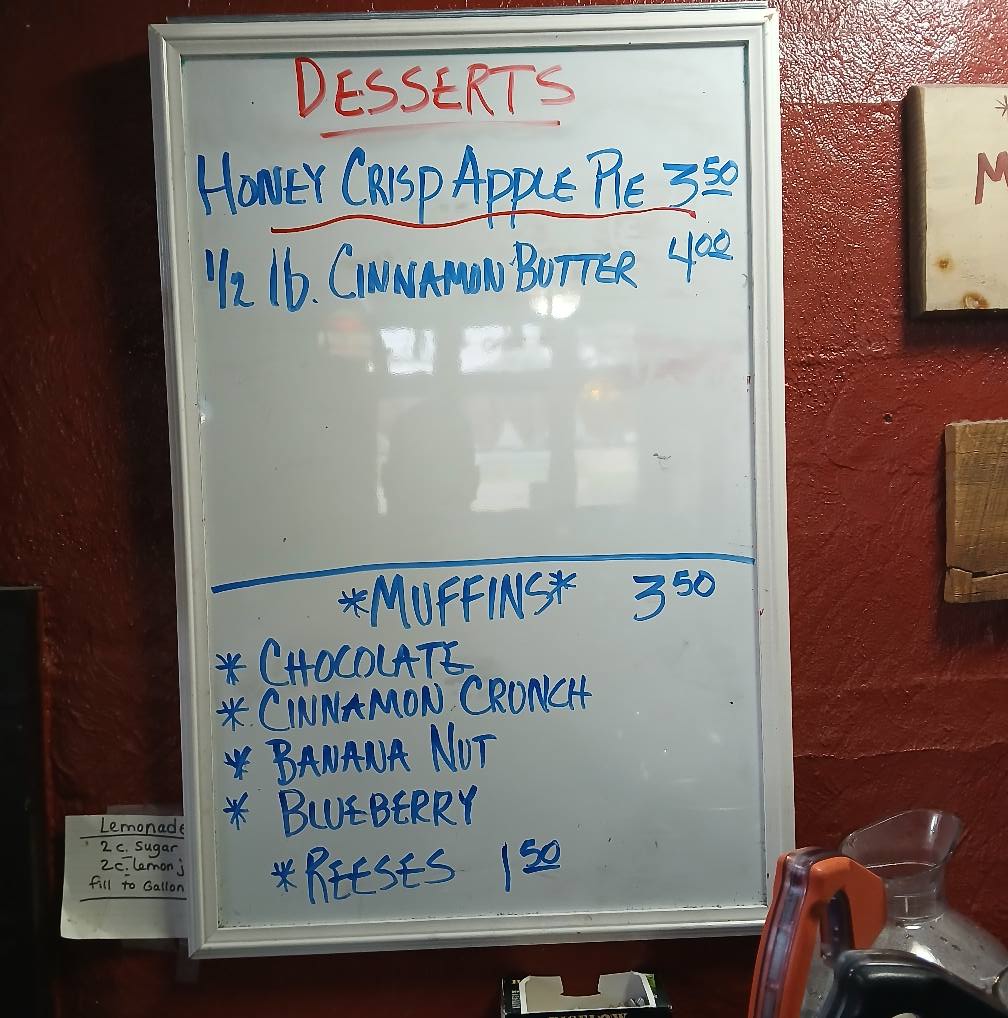 DESSERTS
HONEY CRISP APPLE PIE 3.50
1/2 lb. CINNAMON BUTTER 4.00
*MUFFINS* 3.50
* CHOCOLATE
* CINNAMON CRUNCH
* BANANA NUT
* BLUEBERRY
* REESES 1.50
Lemonade
2 c. Sugar
2 c. lemon j
fill to Gallon
* M